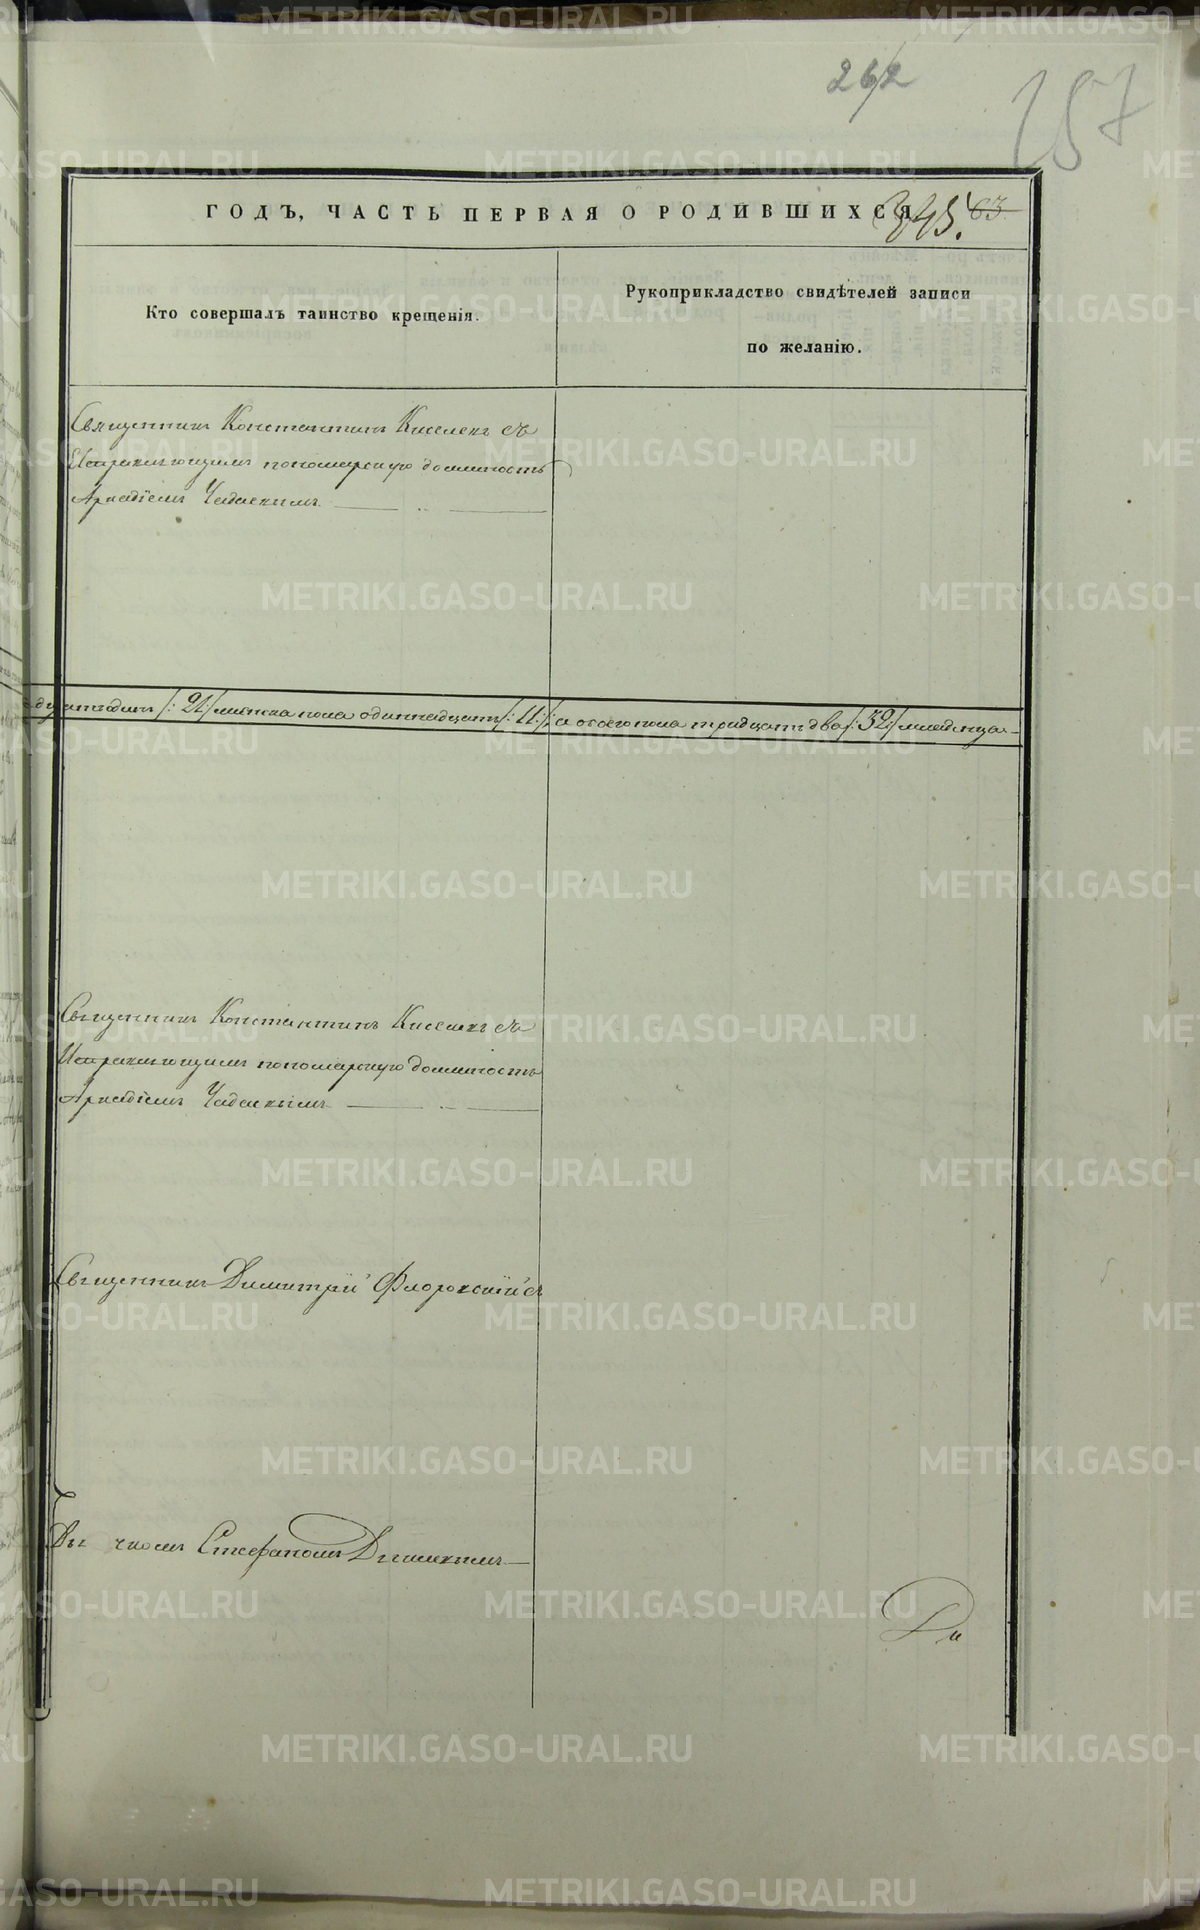 262
157
ГОДЪ, ЧАСТЬ ПЕРВАЯ О РОДИВШИХСЯ
63
Кто совершалъ таинство крещенія.
Рукоприкладство свидѣтелей записи
по желанію.
Священникъ Константинъ Киселевъ съ
Исправляющимъ пономарскую должность
Аркадіемъ Чадаевымъ
/: 21 :/ женска пола одиннадцать /: 11 :/ а обоего пола тридцать два /: 32 :/ младенца
Священникъ Константинъ Киселевъ съ
Исправляющимъ пономарскую должность
Аркадіемъ Чадаевымъ
Священникъ Димитрій Флоровскій съ
Стефаномъ
METRIKI.GASO-URAL.RU